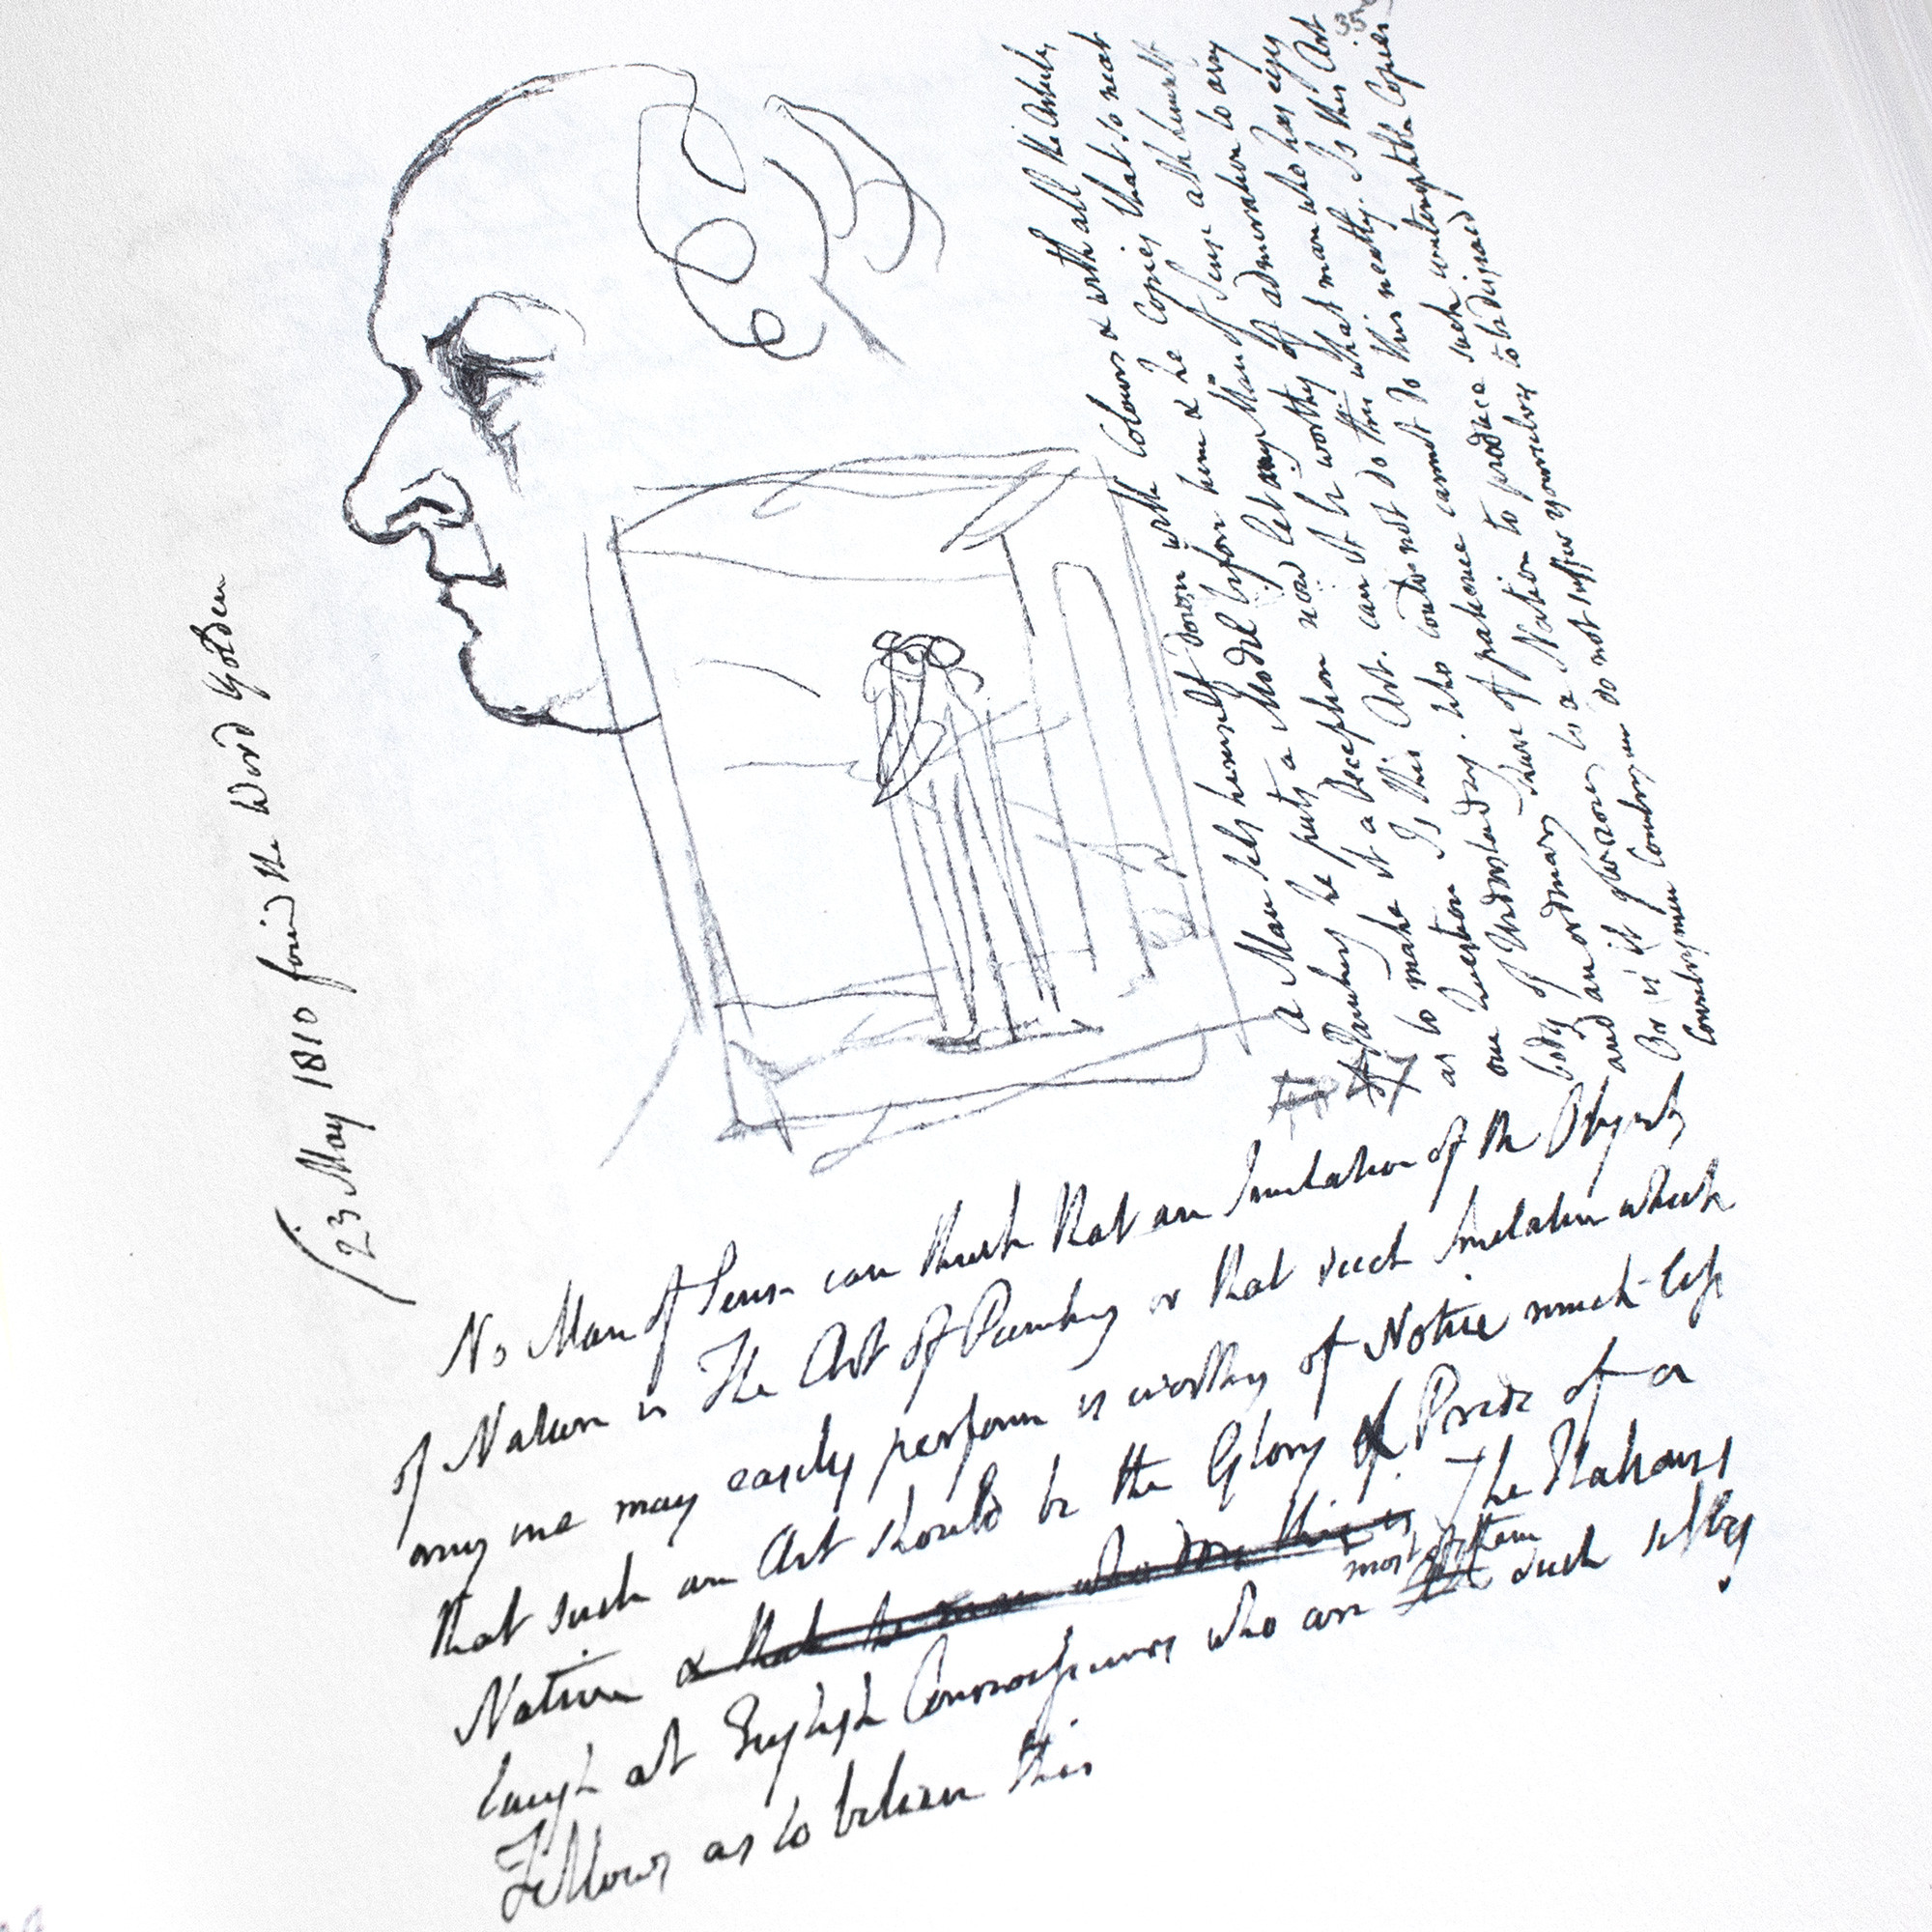 35
23 May 1810 found the Word Golden
a Man sets himself down with Colours & with all the Articles
of Painting he puts a Model before him & he Copies that so neat
as to make it a Deception now let any Man of Sense ask himself
one Question Is this Art. can it be worthy of admiration to any
body of Understanding. Who could not do this what man who has eyes
and an ordinary share of patience cannot do this neatly. Is this Art
Or is it glorious to a Nation to produce such contemptible Copies
Countrymen Countrymen do not suffer yourselves to be disgraced
No Man of Sense can think that an Imitation of the Objects
of Nature is The Art of Painting or that such Imitation which
any one may easily perform is worthy of Notice much less
that such an Art should be the Glory & Pride of a
Nation & that the man who does this is The Italians
laugh at English Connoisseurs who are most of them such silly
Fellows as to believe this